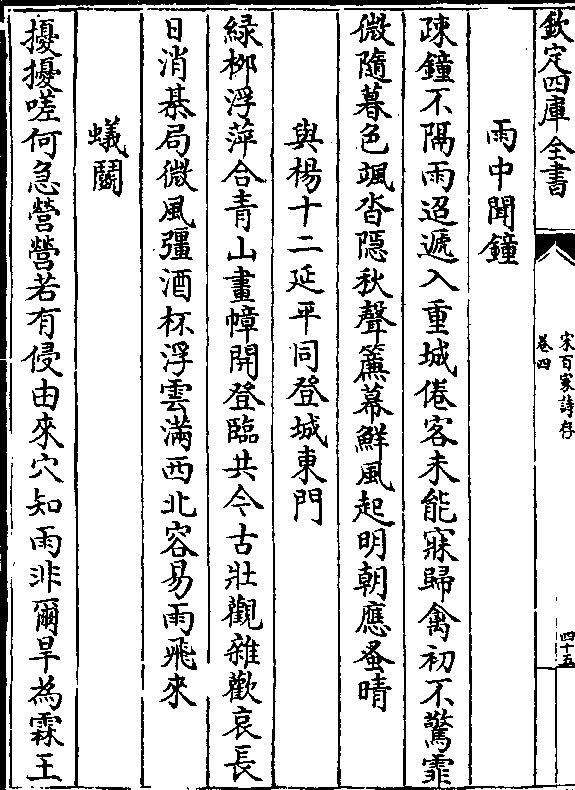 欽定四庫全書
宋百家詩存
卷四
四十五
雨中聞鐘
疎鐘不隔雨迢遞入重城倦客未能寐歸禽初不驚霏
微隨暮色颯沓隱秋聲簾幕鮮風起明朝應蚤晴
與楊十二延平同登城東門
緑柳浮萍合青山畫幛開登臨共今古壯觀雜歡哀長
日消棊局微風彊酒杯浮雲滿西北容易雨飛來
蟻鬭
擾擾嗟何急營營若有侵由來穴知雨非爾旱為霖王